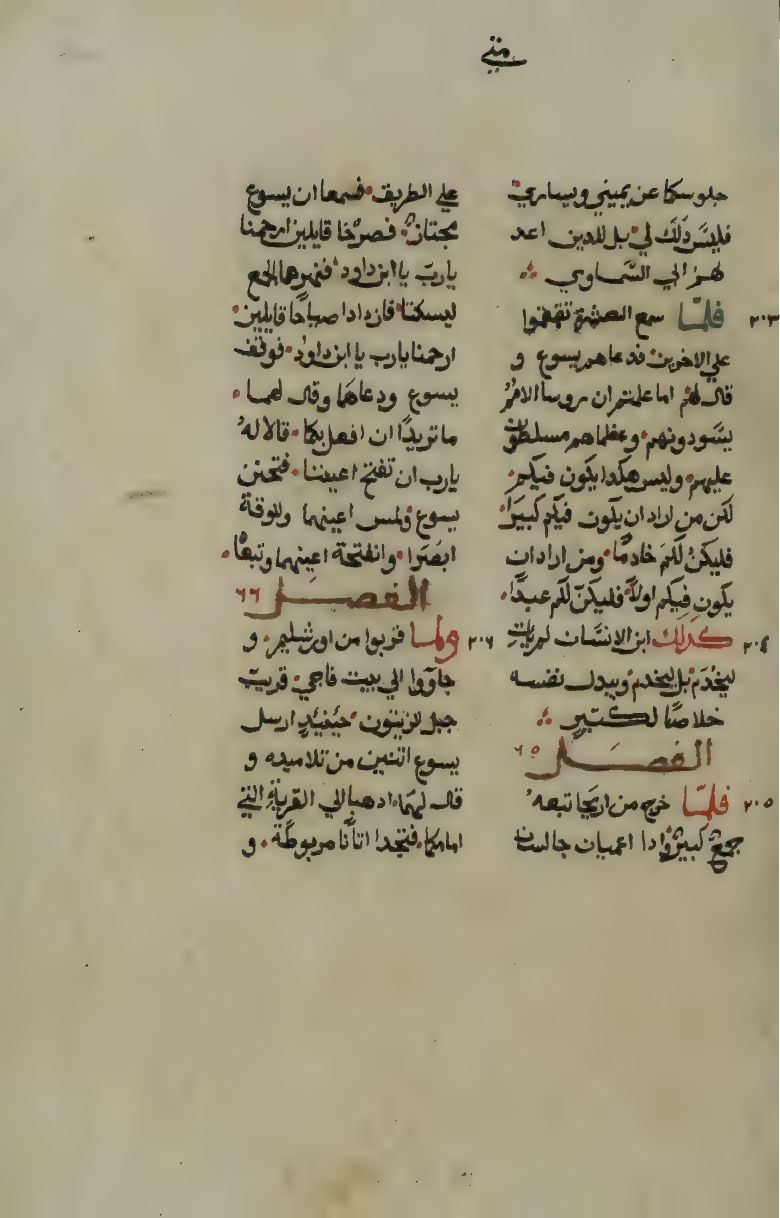 متي
جلوسكما عن يميني ويساري
فليس ذلك لي بل للدين اعد
لهم ابي السماوي
٢٠٣ فلمّا سمع العشرة تقمقموا
علي الاخرين فدعاهم يسوع و
قال لهم اما علمتم ان روسا الامم
يسودونهم وعظماهم مسلطون
عليهم وليس هكدا يكون فيكم
لكن من اراد ان يكون فيكم كبيرًا
فليكن لكم خادمًا ومن اراد ان
يكون فيكم اولًا فليكن لكم عبدًا
٢٠٤ كدلك ابن الانسان لم يات
ليُخدَم بل ليخدم ويبدل نفسه
خلاصًا لكتير
الفصل ٦٥
٢٠٥ فلمّا خرج من اريحا تبعه
جمع كبير وادا اعميان جالسان
علي الطريق فسمعا ان يسوع
مجتاز فصرخا قايلين ارحمنا
يارب يا ابن داود فنهرهما الجمع
ليسكتا فازدادا صياحًا قايلين
ارحمنا يارب يا ابن داود فوقف
يسوع ودعاهما وقال لهما
ما تريدا ان افعل بكما قالا له
يارب ان تفتح اعيننا فتحنن
يسوع ولمس اعينهما وللوقة
ابصرا وانفتحة اعينهما وتبعاه
الفصل ٦٦
٢٠٦ ولما قربوا من اورشليم و
جاووا الي بيت فاجي قريب
جبل الزيتون حينيد ارسل
يسوع اتنين من تلاميده و
قال لهما ادهبا الي القرية التي
امامكما فتجدا اتانًا مربوطة و